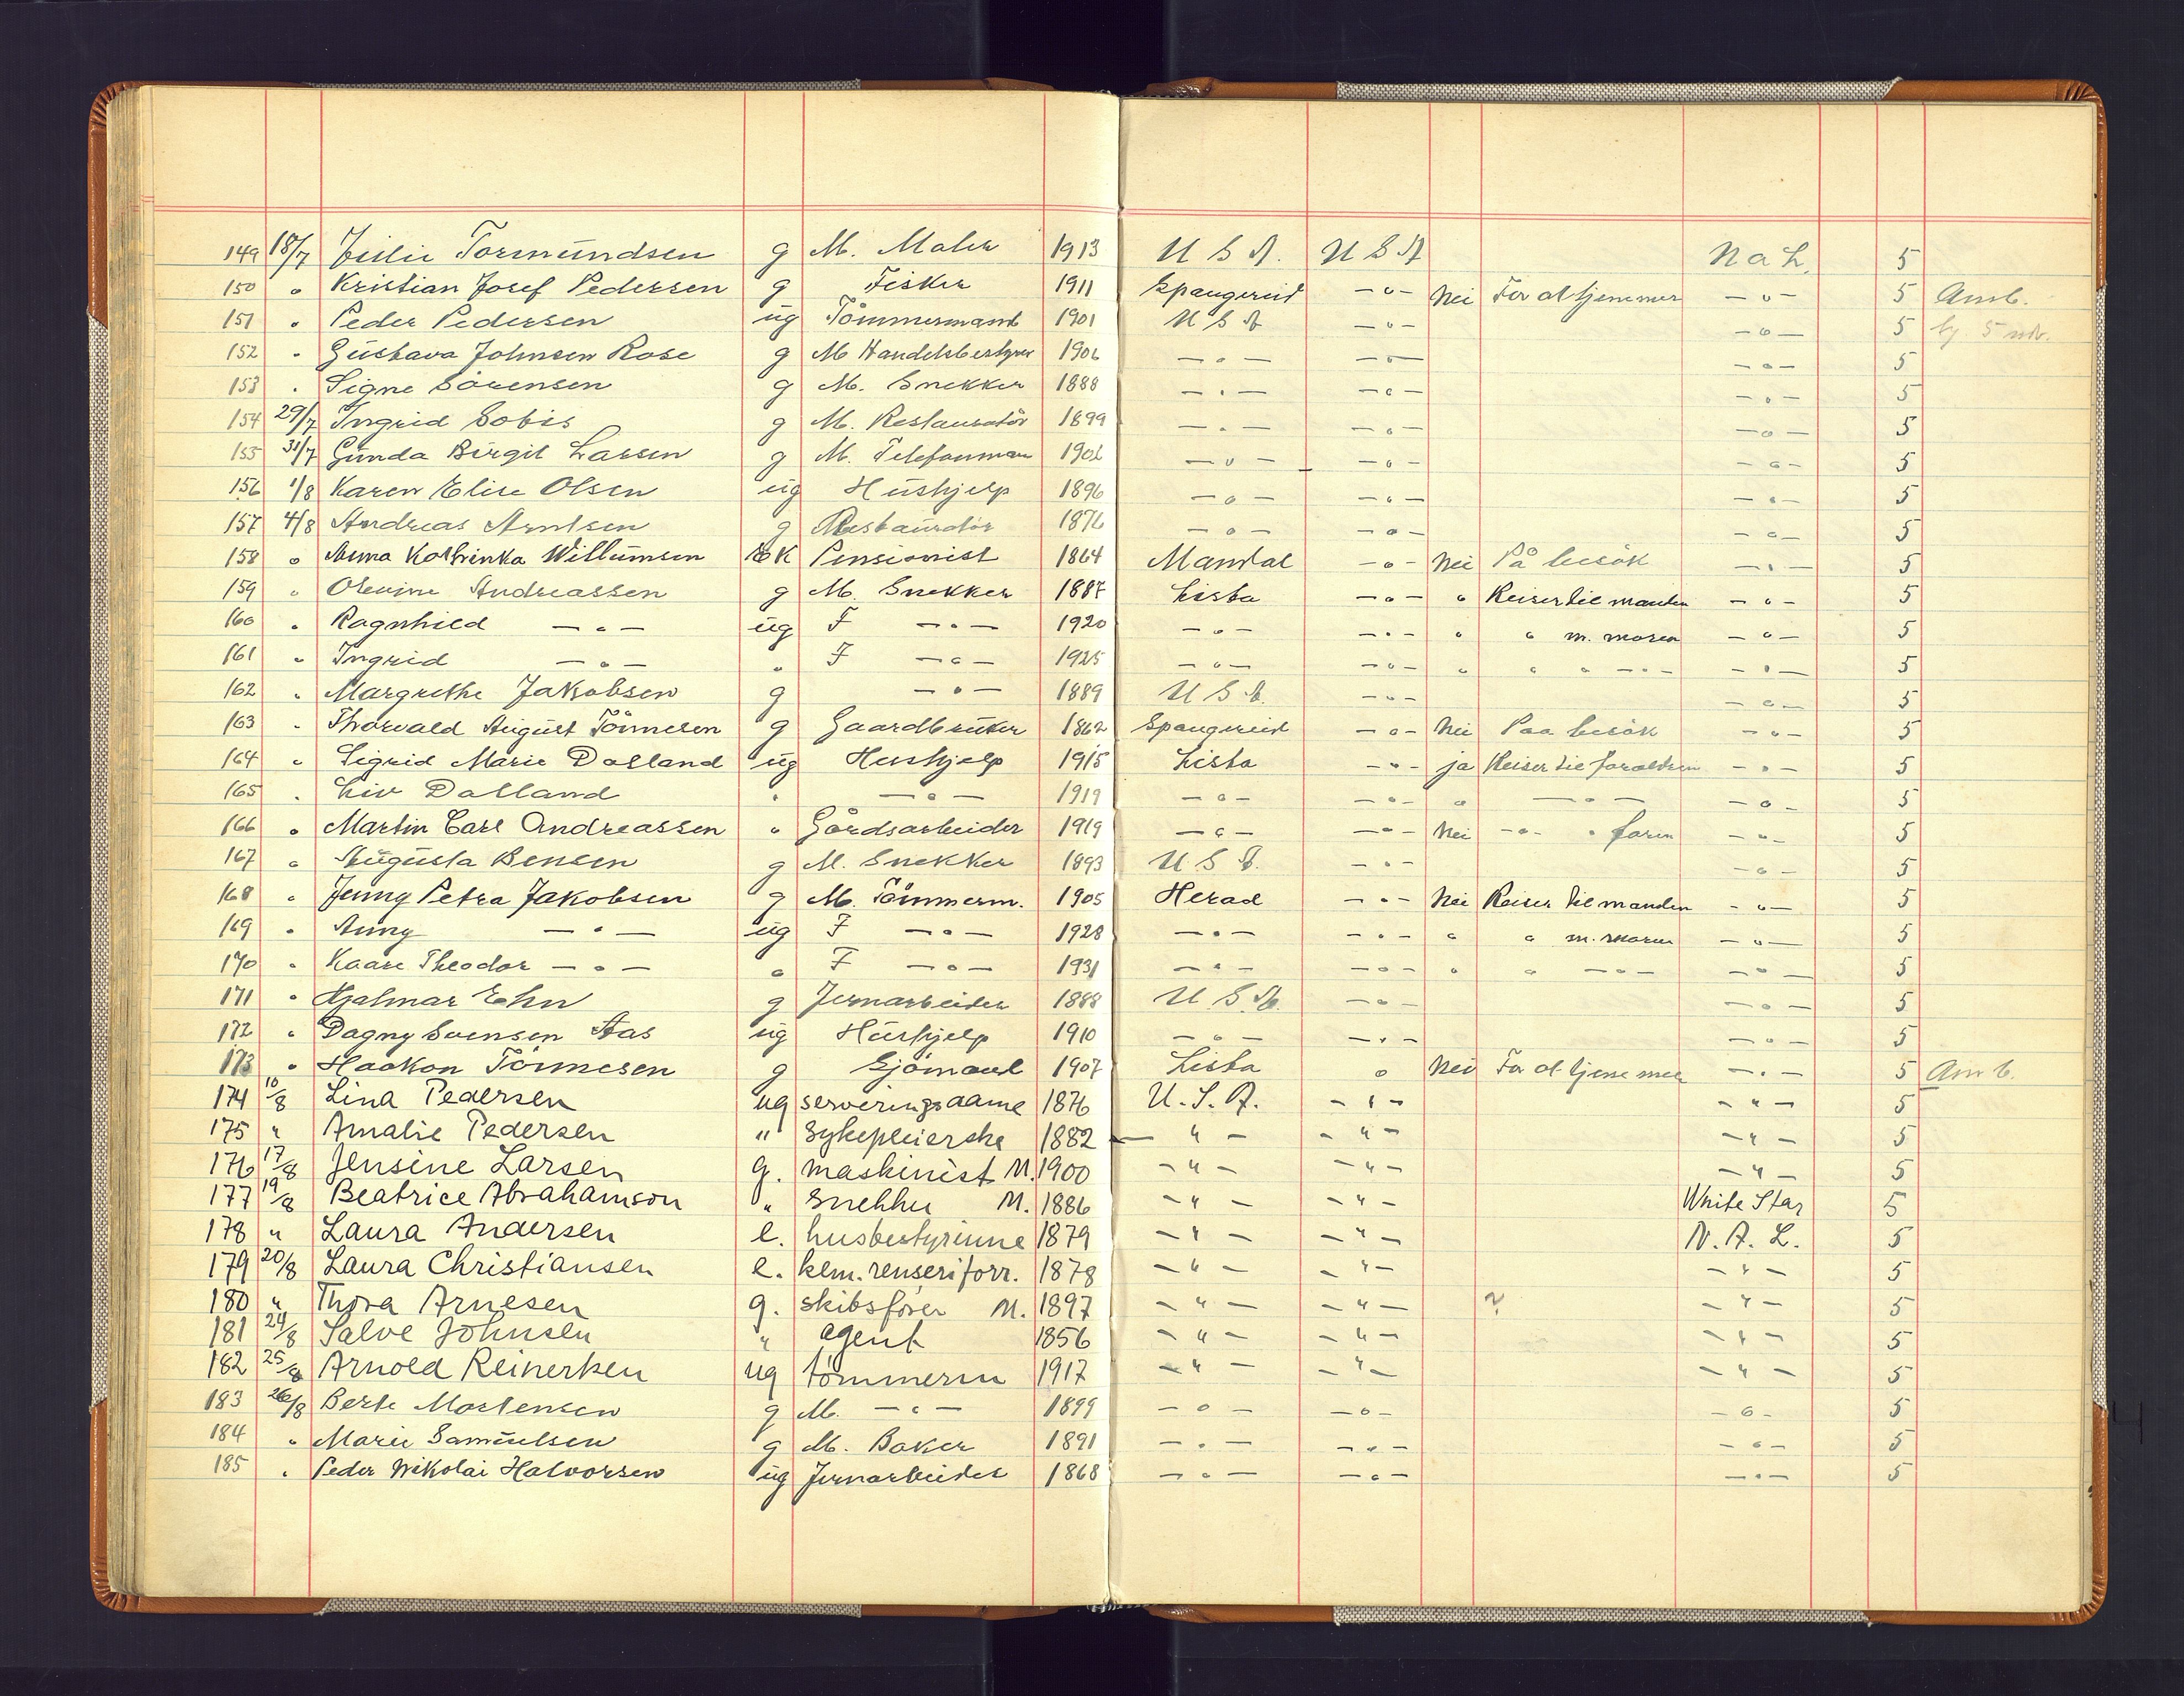 149 18/7 Tormundsen g M. Maler 1913 U S A. U S A N a L. 5
150 " Kristian Josef Pedersen g Fisker 1911 Spangereid -"- Nei For at tjene mer -"- 5 Amb.
151 " Peder Pedersen ug Tömmermand 1901 U S A -"- -"- 5
152 " Gustava Johnsen Rose g M Handelsbestyrer 1906 -"- -"- -"- 5
153 " Signe Sörensen g M. Snekker 1888 -"- -"- -"- 5
154 29/7 Ingrid Sobis g M. Restauratör 1899 -"- -"- -"- 5
155 31/7 Gunda Birgit Larsen g M. Telefonman -"- -"- -"- 5
156 1/8 Karen Elise Olsen ug Hushjelp 1896 -"- -"- -"- 5
157 4/8 Andreas Arntsen g Restauratör 1876 -"- -"- -"- 5
158 " Anna Kathinka Willumsen EK Pensionist 1864 Mandal -"- Nei På besök -"- 5
159 " Olevine Andreassen g M. Snekker 1887 Lista -"- " Reiser til manden -"- 5
160 " Ragnhild -"- ug F -"- 1920 -"- -"- " " m. moren -"- 5
161 " Ingrid -"- " F -"- 1925 -"- -"- " " " -"- -"- 5
162 " Margrethe Jakobsen g -"- 1889 U S A. -"- -"- 5
163 " Thorvald August Tönnesen g Gaardbruker 1862 Spangereid -"- Nei Paa besök -"- 5
164 " Sigrid Marie Dalland ug Hushjelp 1915 Lista -"- ja Reiser til foreldren -"- 5
165 " Liv Dalland " -"- 1919 -"- -"- " -"- -"- 5
166 " Martin Carl Andreassen " Gårdsarbeider 1919 -"- -"- Nei -"- " faren -"- 5
167 " Augusta Bensen g M. Snekker 1893 U S A. -"- -"- 5
168 " Jenny Petra Jakobsen g M. Tömmerm. 1905 Herad -"- Nei Reiser til manden -"- 5
169 " Anny -"- ug F -"- 1928 -"- -"- " " m. moren -"- 5
170 " Kaare Theodor -"- " F -"- 1931 -"- -"- " " -"- -"- 5
171 " Hjalmar Ehn g Jernarbeider 1888 U S A. -"- -"- 5
172 " Dagny Svensen Aas ug Hushjelp 1910 -"- -"- -"- 5
173 " Haakon Tönnesen g Sjömand 1907 Lista " Nei For at tjene mer -"- 5 Amb.
174 10/8 Lina Pedersen ug serveringsdame 1876 U.S.A. -"- -"- 5
175 " Amalie Pedersen " sykepleierske 1882 -"- -"- -"- 5
176 17/8 Jensine Larsen g. maskinist M. 1900 -"- -"- -"- 5
177 19/8 Beatrice Abrahamson " snekker M. 1886 -"- -"- White Star 5
178 " Laura Andersen e. husbestyrinne 1879 -"- -"- N. A. L. 5
179 20/8 Laura Christiansen e. kem. renseriforr. 1878 -"- -"- -"- 5
180 " Thora Arnesen g. skibsfører M. 1897 -"- -"- ? -"- 5
181 24/8 Salve Johnsen " agent 1856 -"- -"- -"- 5
182 25/8 Arnold Reinertsen ug tömmerm 1917 -"- -"- -"- 5
183 26/8 Berte Mortensen g M. -"- 1899 -"- -"- -"- 5
184 " Marie Samuelsen g M. Baker 1891 -"- -"- -"- 5
185 " Peder Nikolai Halvorsen ug Jernarbeider 1868 -"- -"- -"- 5